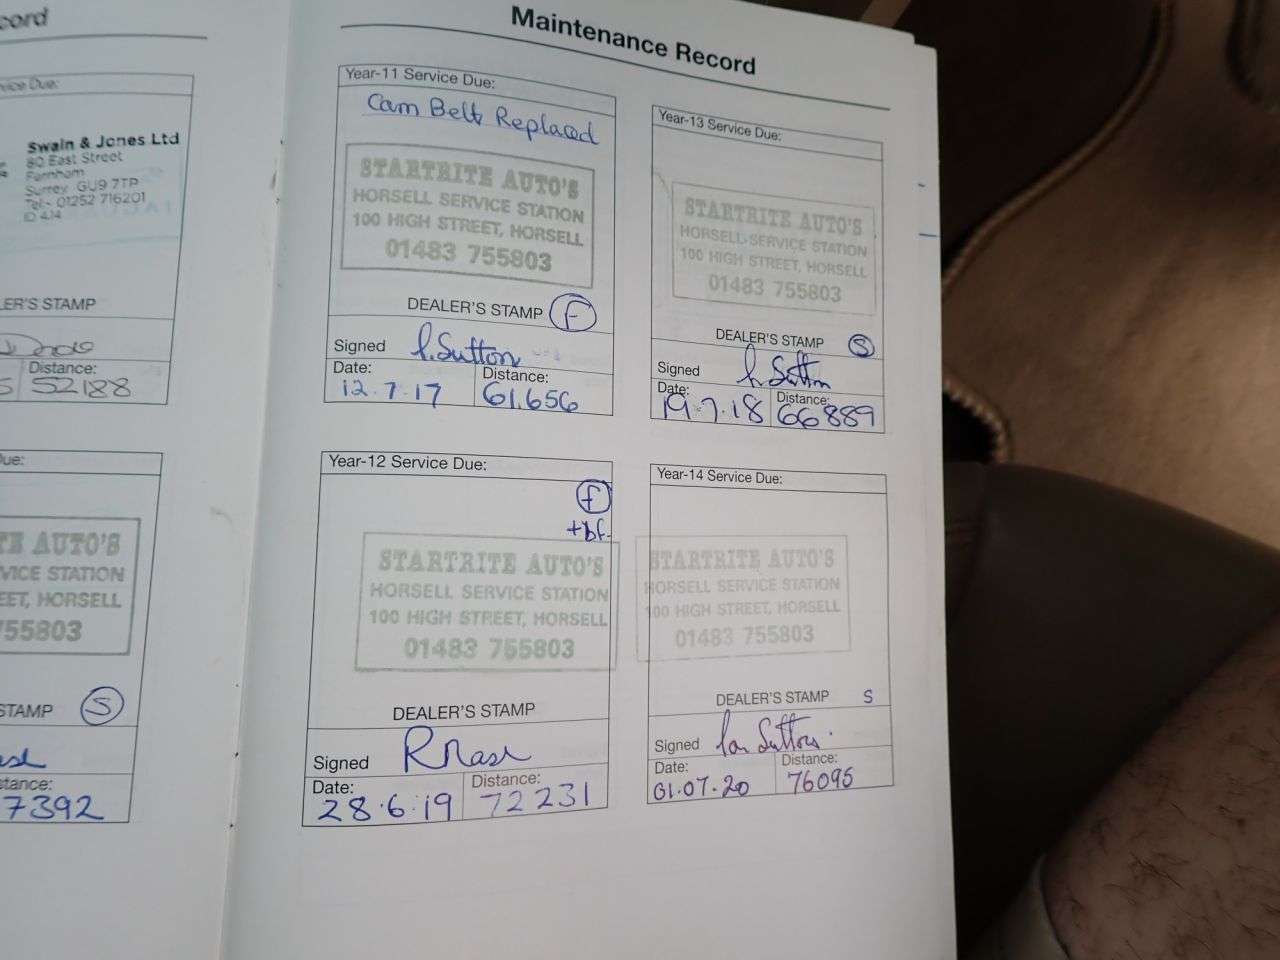 cord
vice Due:
Swain & Jones Ltd
80 East Street
Farnham
Surrey GU9 7TP
Tel:- 01252 716201
ID 414
LER'S STAMP
Distance:
52188
ue:
TE AUTO'S
VICE STATION
EET, HORSELL
755803
STAMP S
stance:
7392
Maintenance Record
Year-11 Service Due:
Cam Belt Replaced
STARTRITE AUTO'S
HORSELL SERVICE STATION
100 HIGH STREET, HORSELL
01483 755803
DEALER'S STAMP F
Signed I. Sutton
Date: Distance:
12.7.17 61,656
Year-12 Service Due:
f
+bf.
STARTRITE AUTO'S
HORSELL SERVICE STATION
100 HIGH STREET, HORSELL
01483 755803
DEALER'S STAMP
Signed R Nash
Date: Distance:
28.6.19 72231
Year-13 Service Due:
STARTRITE AUTO'S
HORSELL SERVICE STATION
100 HIGH STREET, HORSELL
01483 755803
DEALER'S STAMP S
Signed I. Sutton
Date: Distance:
19.7.18 66889
Year-14 Service Due:
STARTRITE AUTO'S
HORSELL SERVICE STATION
100 HIGH STREET, HORSELL
01483 755803
DEALER'S STAMP S
Signed Ian Sutton.
Date: Distance:
01.07.20 76095